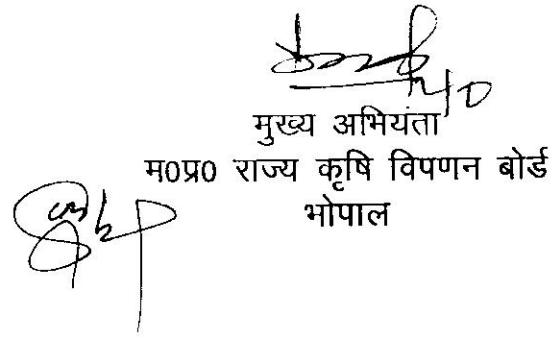 मुख्य अभियंता
म0प्र0 राज्य कृषि विपणन बोर्ड
भोपाल